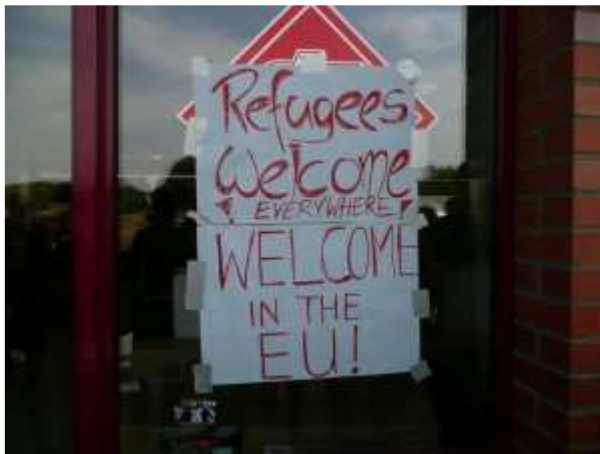 Refugees
Welcome
EVERYWHERE!
WELCOME
IN THE
EU!